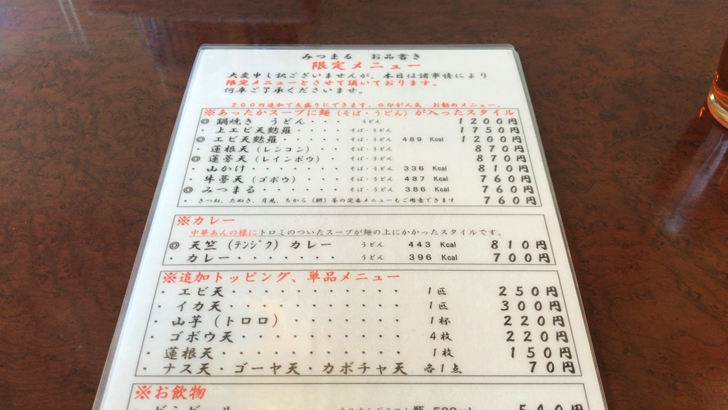 みつまる お品書き
限定メニュー
大変申し訳ございませんが、本日は諸事情により
限定メニューとさせて頂いております。
何卒ご了承くださいませ。
200円追加で大盛りにできます。◎印が人気、お勧めメニュー。
※あったかスープに麺(そば・うどん)が入ったスタイル
◎ 鍋焼き うどん・ うどん 1200円
・ 上エビ天麩羅・・・・ そば・うどん 1750円
◎ エビ天麩羅・・・・・ そば・うどん 489 Kcal 1200円
・ 蓮根天(レンコン)・ そば・うどん 870円
◎ 蓮蔕天(レインボウ)・ そば・うどん 870円
・ 山かけ・・・・・・・ そば・うどん 336 Kcal 810円
・ 牛蒂天(ゴボウ)・・ そば・うどん 487 Kcal 760円
◎ みつまる・・・・・・ そば・うどん 386 Kcal 760円
・ きつね、たぬき、月見、ちから(餅)等の定番メニューもご用意できます 760円
※カレー
中華あんの様にトロミのついたスープが麺の上にかかったスタイルです。
◎ 天竺(テンジク)カレー うどん 443 Kcal 810円
・ カレー・・・・・・・ うどん 396 Kcal 700円
※追加トッピング、単品メニュー
・ エビ天・・・・・・・・・・ 1匹 250円
・ イカ天・・・・・・・・・・ 1匹 300円
・ 山芋(トロロ)・・・・・・・ 1杯 220円
・ ゴボウ天・・・・・・・・・ 4枚 220円
・ 蓮根天・・・・・・・・・・ 1枚 150円
・ ナス天・ゴーヤ天・カボチャ天 各1点 70円
※お飲物